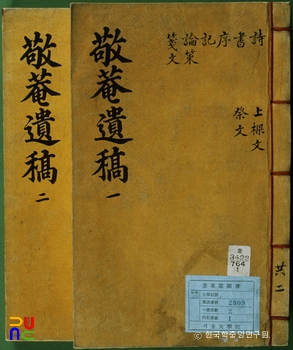 敬菴遺稿 一
詩 書 序 記 論 策 箋文
上樑文
祭文
共二
敬菴遺稿 二
奎
3429
764
1
2909
2
1
ⓒ 한국학중앙연구원